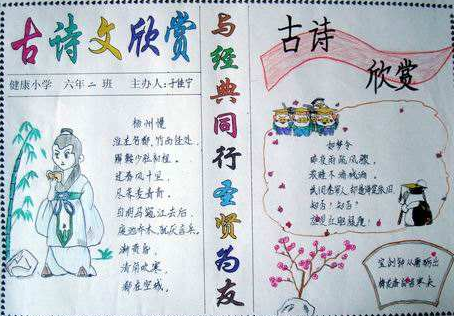 古诗文欣赏
健康小学 六年二班 主办人:于佳宁
扬州慢
淮左名都,竹西佳处,
解鞍少驻初程。
过春风十里,
尽荠麦青青。
自胡马窥江去后,
废池乔木,犹厌言兵。
渐黄昏,
清角吹寒,
都在空城。
与经典同行圣贤为友
古诗
欣赏
如梦令
昨夜雨疏风骤,
浓睡不消残酒。
试问卷帘人,却道海棠依旧
知否?知否?
应是绿肥红瘦!
宝剑锋从磨砺出
梅花香自苦寒来